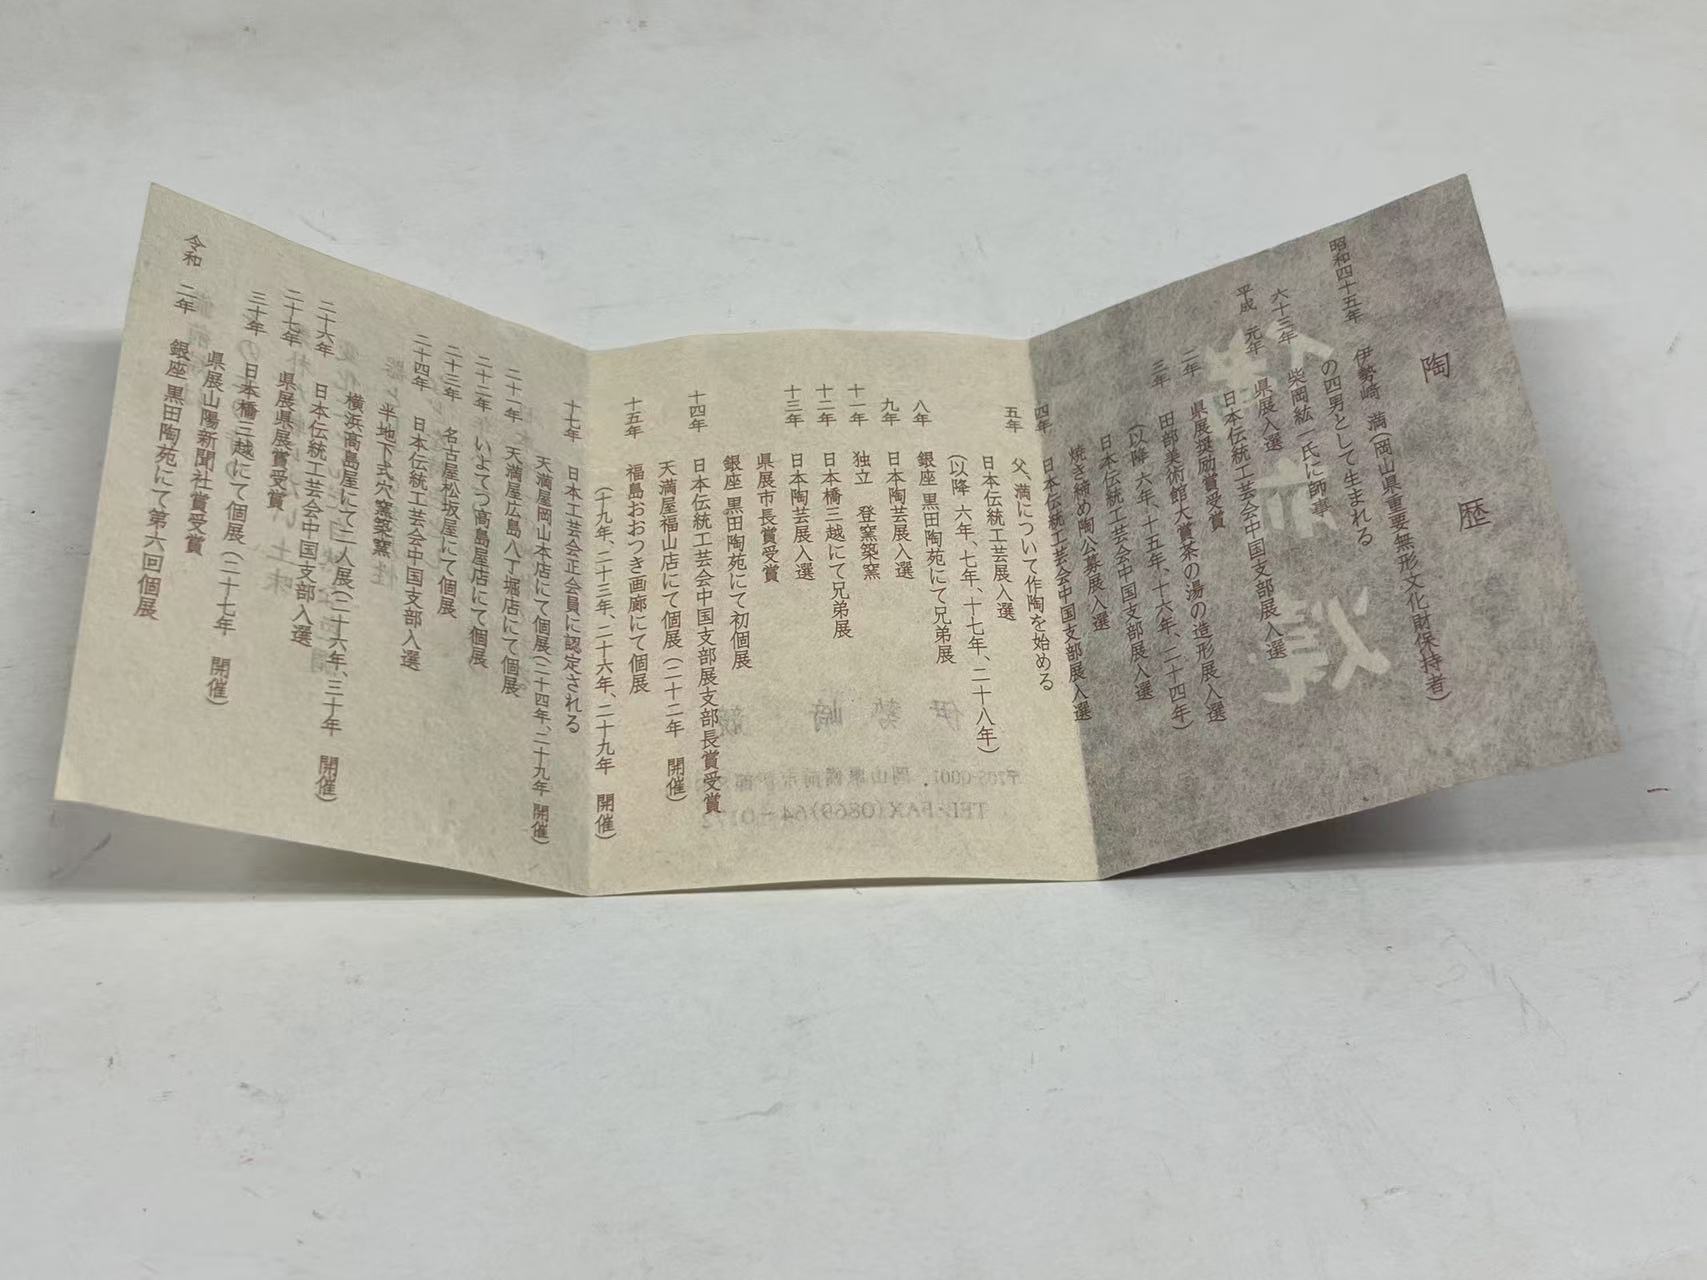 陶歴
昭和四十五年 伊勢﨑 満(岡山県重要無形文化財保持者)
の四男として生まれる
六十三年 柴岡紘一氏に師事
平成 元年 県展入選
日本伝統工芸会中国支部展入選
二年 県展奨励賞受賞
田部美術館大賞茶の湯の造形展入選
三年 (以降 六年、十五年、十六年、二十四年)
日本伝統工芸会中国支部展入選
焼き締め陶公募展入選
四年 日本伝統工芸会中国支部展入選
五年 父、満について作陶を始める
日本伝統工芸展入選
(以降 六年、七年、十七年、二十八年)
八年 銀座 黒田陶苑にて兄弟展
九年 日本陶芸展入選
十一年 独立 登窯築窯
十二年 日本橋三越にて兄弟展
十三年 日本陶芸展入選
県展市長賞受賞
銀座 黒田陶苑にて初個展
十四年 日本伝統工芸会中国支部展支部長賞受賞
天満屋福山店にて個展(二十二年 開催)
十五年 福島おおつき画廊にて個展
(十九年、二十三年、二十六年、二十九年 開催)
十七年 日本工芸会正会員に認定される
天満屋岡山本店にて個展(二十四年、二十九年 開催)
二十一年 天満屋広島八丁堀店にて個展
二十二年 いよてつ高島屋店にて個展
二十三年 名古屋松坂屋にて個展
二十四年 日本伝統工芸会中国支部入選
半地下式穴窯築窯
横浜高島屋にて二人展(二十六年、三十年 開催)
二十六年 日本伝統工芸会中国支部入選
二十七年 県展県展賞受賞
三十年 日本橋三越にて個展(二十七年 開催)
県展山陽新聞社賞受賞
令和 二年 銀座 黒田陶苑にて第六回個展
備前焼
伊勢﨑 競
TEL・FAX(0869)64-0172